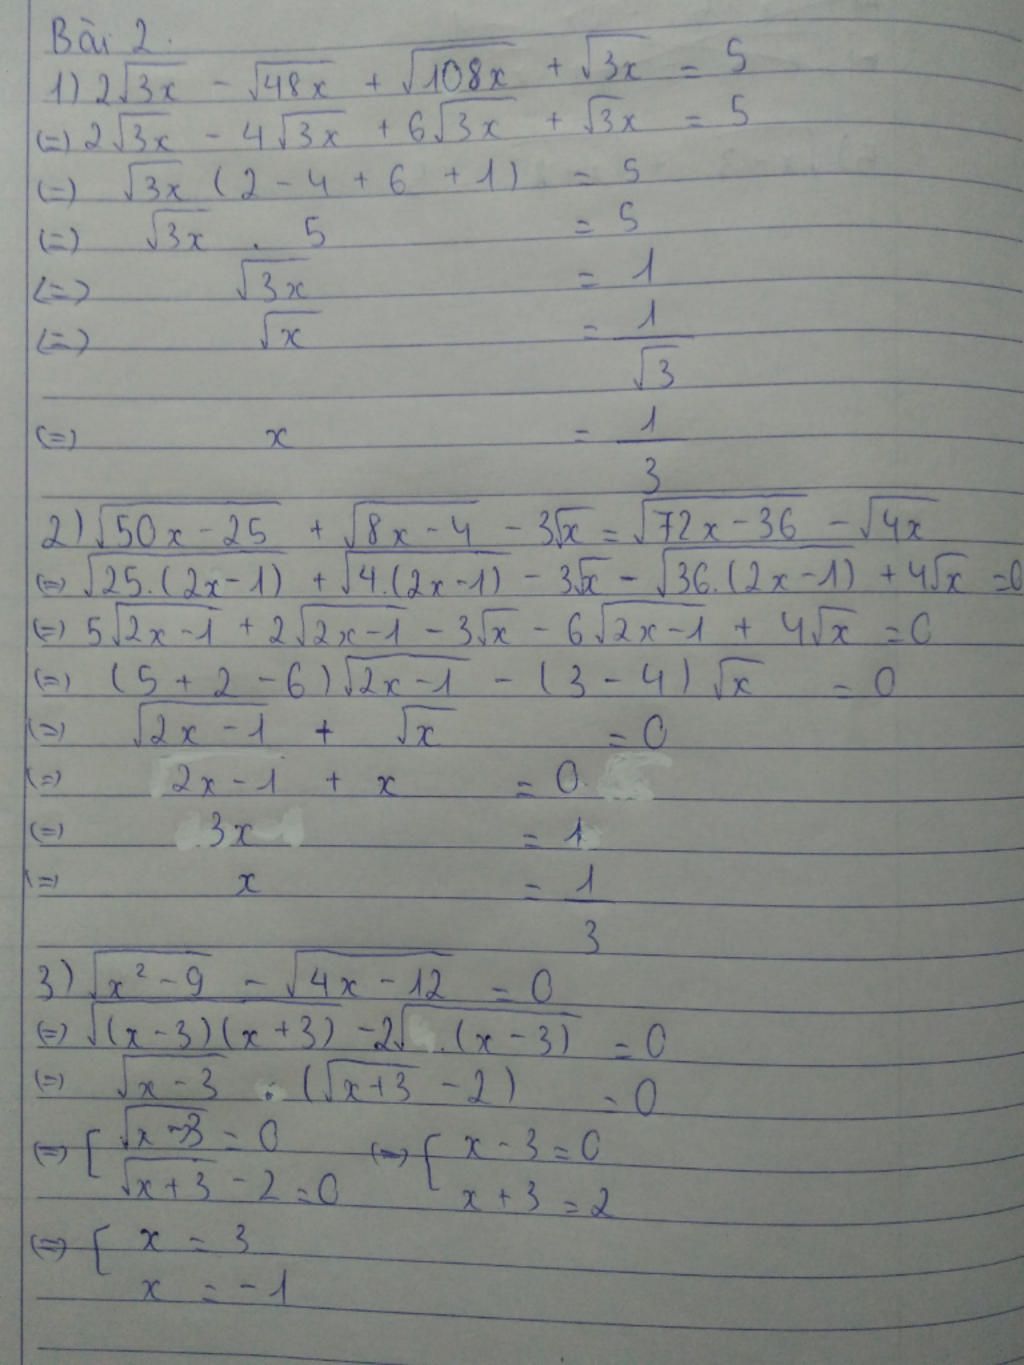 Bài 2.
1) 2√3x - √48x + √108x + √3x = 5
(=) 2√3x - 4√3x + 6√3x + √3x = 5
(=) √3x (2 - 4 + 6 + 1) = 5
(=) √3x . 5 = 5
(=) √3x = 1
(=) √x = 1/√3
(=) x = 1/3
2) √50x - 25 + √8x - 4 - 3√x = √72x - 36 - √4x
(=) √25.(2x-1) + √4.(2x-1) - 3√x - √36.(2x-1) + 4√x = 0
(=) 5√2x-1 + 2√2x-1 - 3√x - 6√2x-1 + 4√x = 0
(=) (5 + 2 - 6)√2x-1 - (3 - 4) √x = 0
(=) √2x-1 + √x = 0
(=) 2x-1 + x = 0
(=) 3x = 1
(=) x = 1/3
3) √x² - 9 - √4x - 12 = 0
(=) √(x-3)(x+3) - 2√.(x-3) = 0
(=) √x-3 . (√x+3 - 2) = 0
(=) [ √x-3 = 0 (=) [ x - 3 = 0
√x+3 - 2 = 0 x + 3 = 2
(=) [ x = 3
x = -1